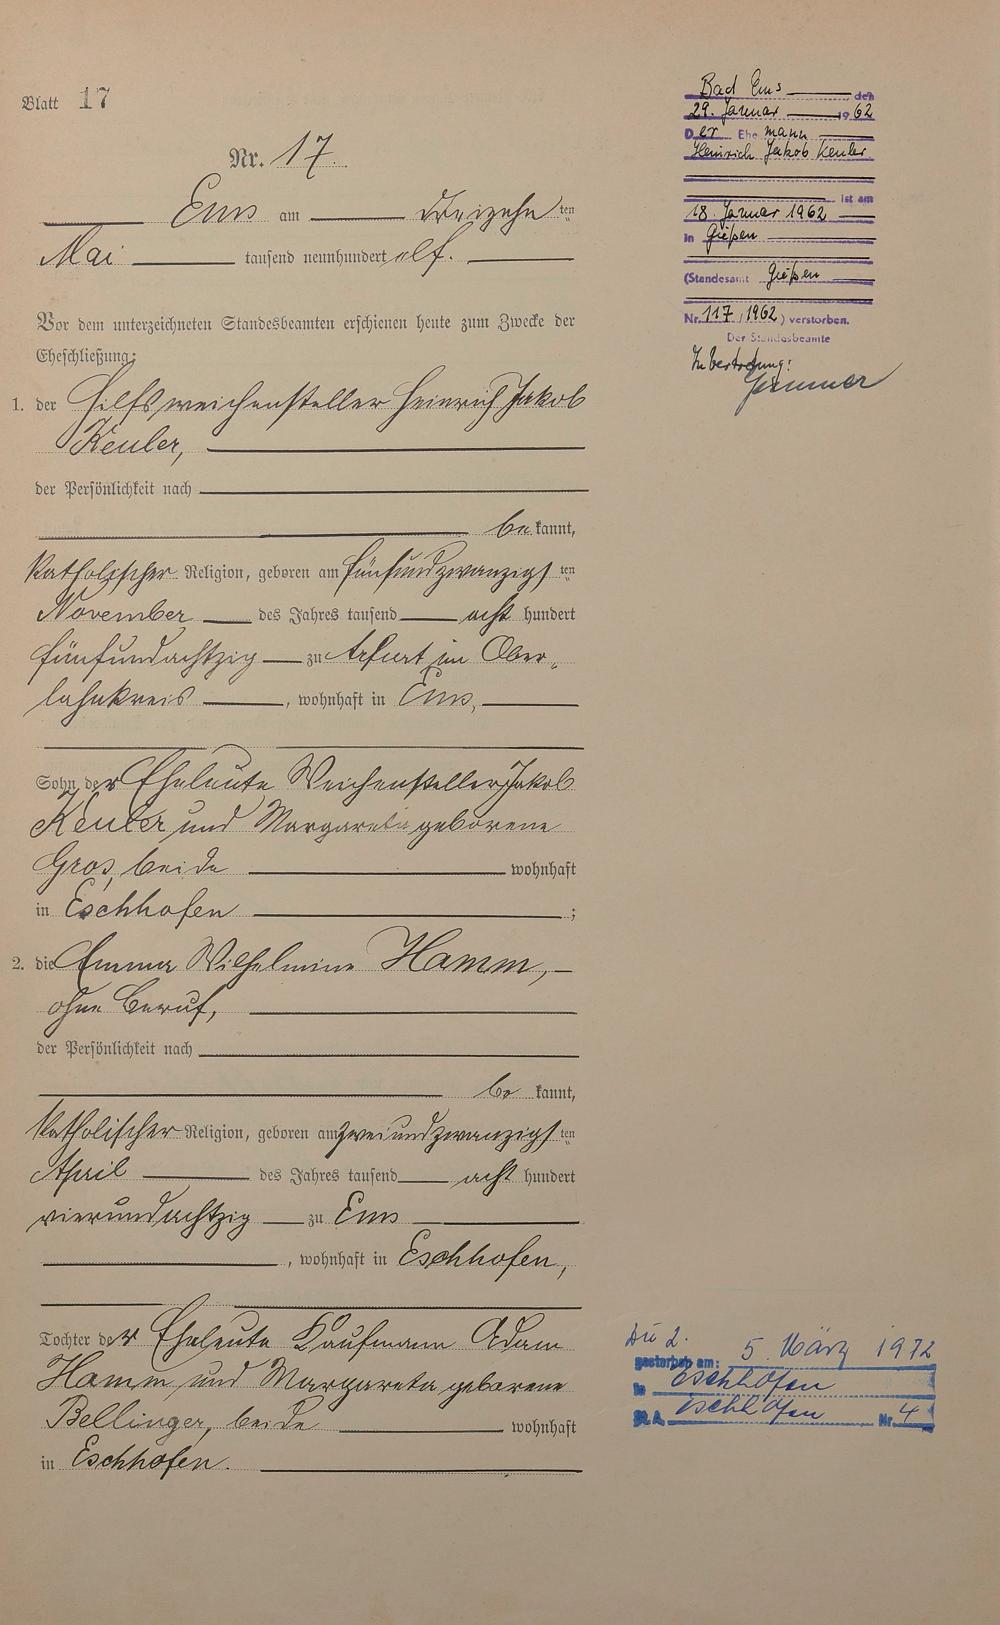 Blatt 17
Nr. 17.
Ems am dreizehnten
Mai tausend neunhundert elf.
Vor dem unterzeichneten Standesbeamten erschienen heute zum Zwecke der
Eheschließung:
1. der Hilfsweichensteller Heinrich Jakob
Keuler,
der Persönlichkeit nach
bekannt,
katholischer Religion, geboren am fünfundzwanzigsten
November des Jahres tausend acht hundert
fünfundachtzig zu Arfurt im Ober-
lahnkreis, wohnhaft in Ems,
Sohn der Eheleute Weichensteller Jakob
Keuler und Margareta geborene
Gros, beide wohnhaft
in Eschhofen;
2. die Emma Wilhelmine Hamm,
ohne Beruf,
der Persönlichkeit nach
bekannt,
katholischer Religion, geboren am zweiundzwanzigsten
April des Jahres tausend acht hundert
vierundachtzig zu Ems
, wohnhaft in Eschhofen,
Tochter der Eheleute Kaufmann Adam
Hamm und Margareta geborene
Bellinger, beide wohnhaft
in Eschhofen.
Bad Ems, den
29. Januar 1962
Der Ehemann
Heinrich Jakob Keuler
ist am
18. Januar 1962
in Gießen
(Standesamt Gießen
Nr. 117/1962) verstorben.
Der Standesbeamte
In Vertretung:
Die 2.
gestorben am: 5. März 1972
in Eschhofen
St.A. Eschhofen Nr. 4